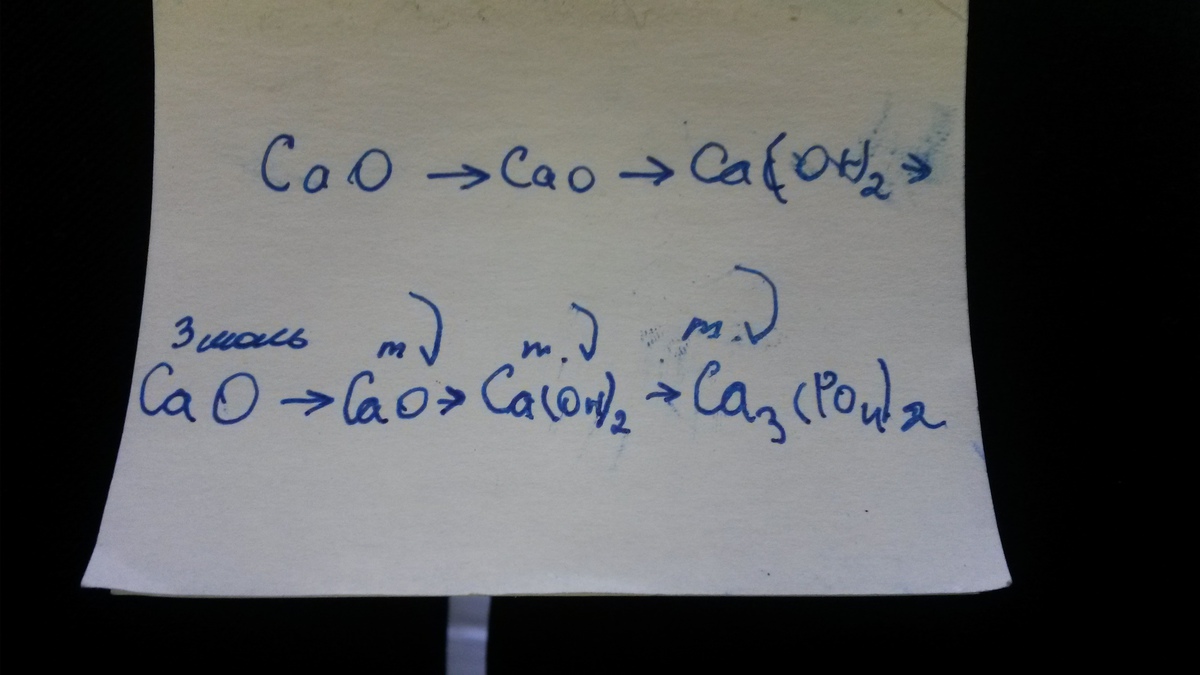 CaO → CaO → Ca(OH)₂ →
3 моль m ) m. ) m. )
CaO → CaO → Ca(OH)₂ → Ca₃(PO₄)₂